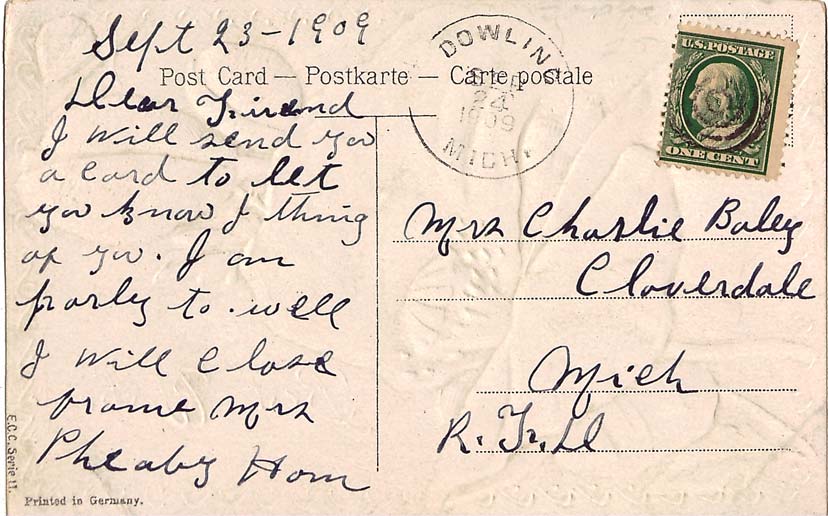 Sept 23-1909
Post Card — Postkarte — Carte postale
Dear Friend
I will send you
a card to let
you know I thing
of you. I am
porly to. well
I will close
frome Mrs
Pheaby Hom
E.C.C. Serie 11.
Printed in Germany.
DOWLING
SEP
24
1909
MICH.
U.S. POSTAGE
ONE CENT
Mrs Charlie Baley
Cloverdale
Mich
R. F. D